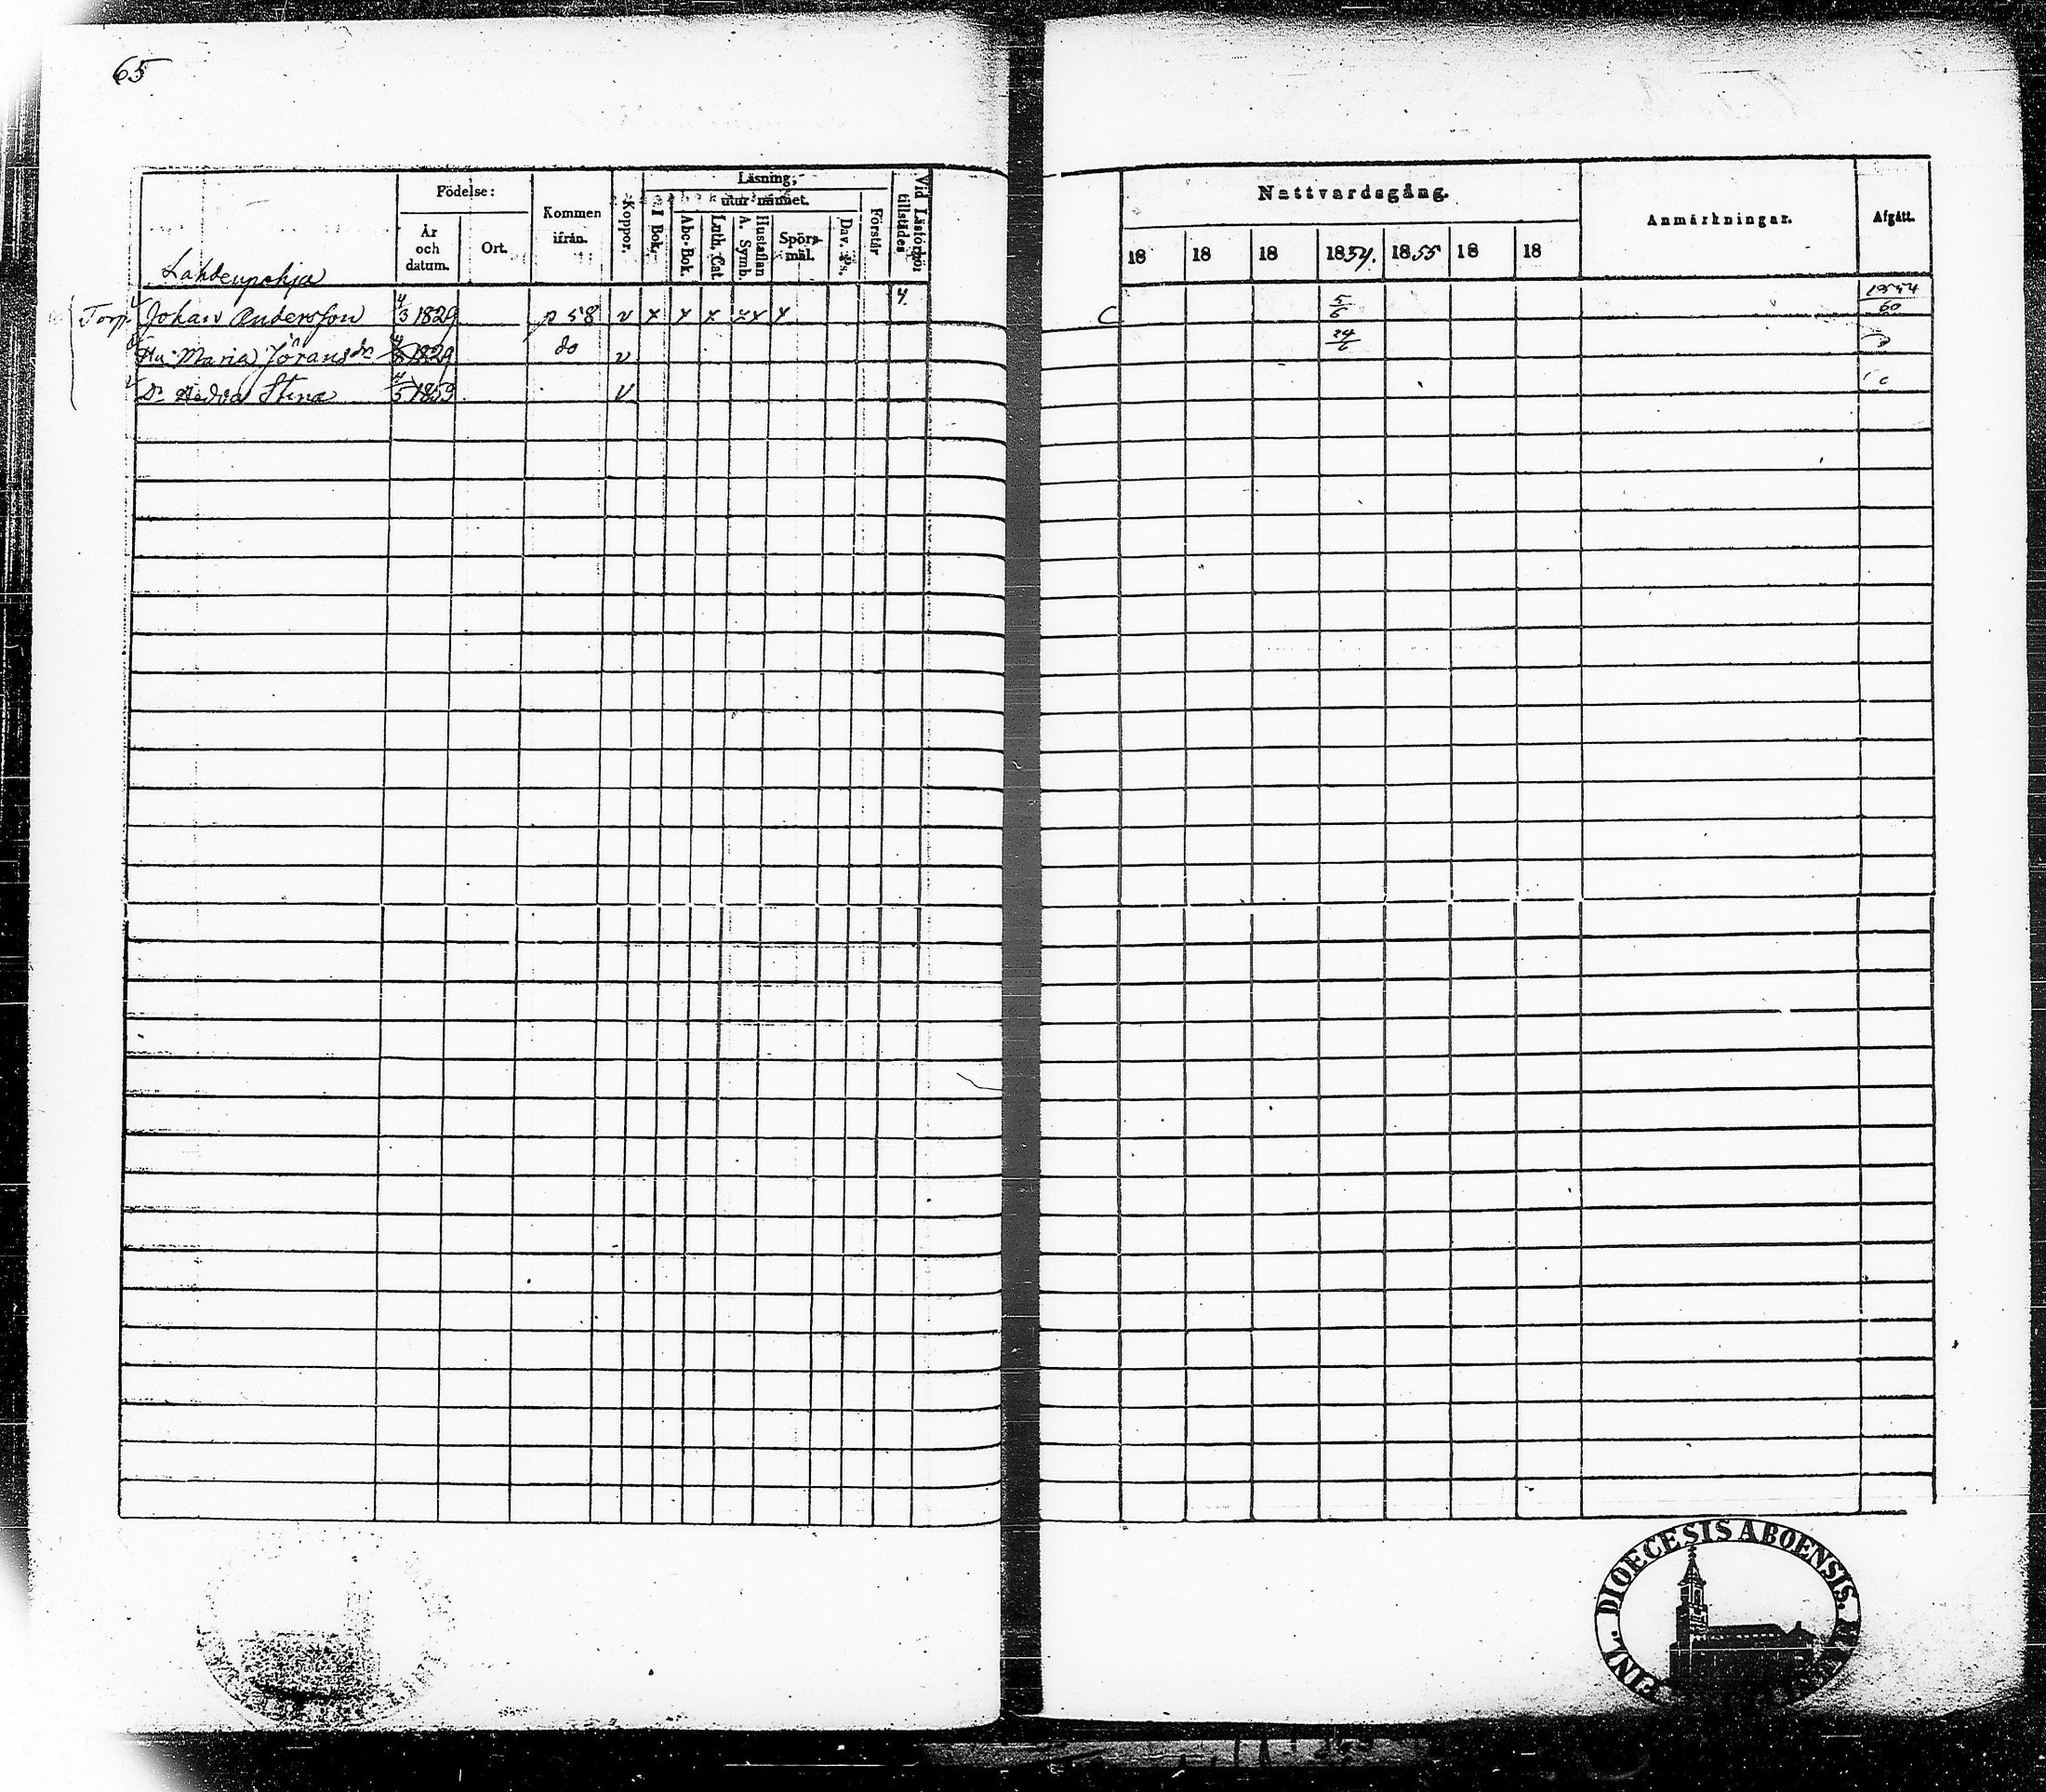 65
Lahdenpohja
Födelse:
År och datum.
Ort.
Kommen ifrån.
Koppor.
Läsning;
I Bok.
utur minnet.
Abc-Bok.
Luth. Cat.
A. Symb.
Hustaflan
Spörsmål.
Dav. Ps.
Förstår
Vid Läsförhör tillstädes
Nattvardsgång.
18 18 18 1854. 1855 18 18
Anmärkningar.
Afgått.
Torp. Johan Andersson 4/3 1829 p 58 v x x x x x x 4 C 5/6
Hu. Maria Jöransdr 1829 do v 24/6
Dr Hedvig Stina 4/5 1853 v
DIOECESIS ABOENSIS.